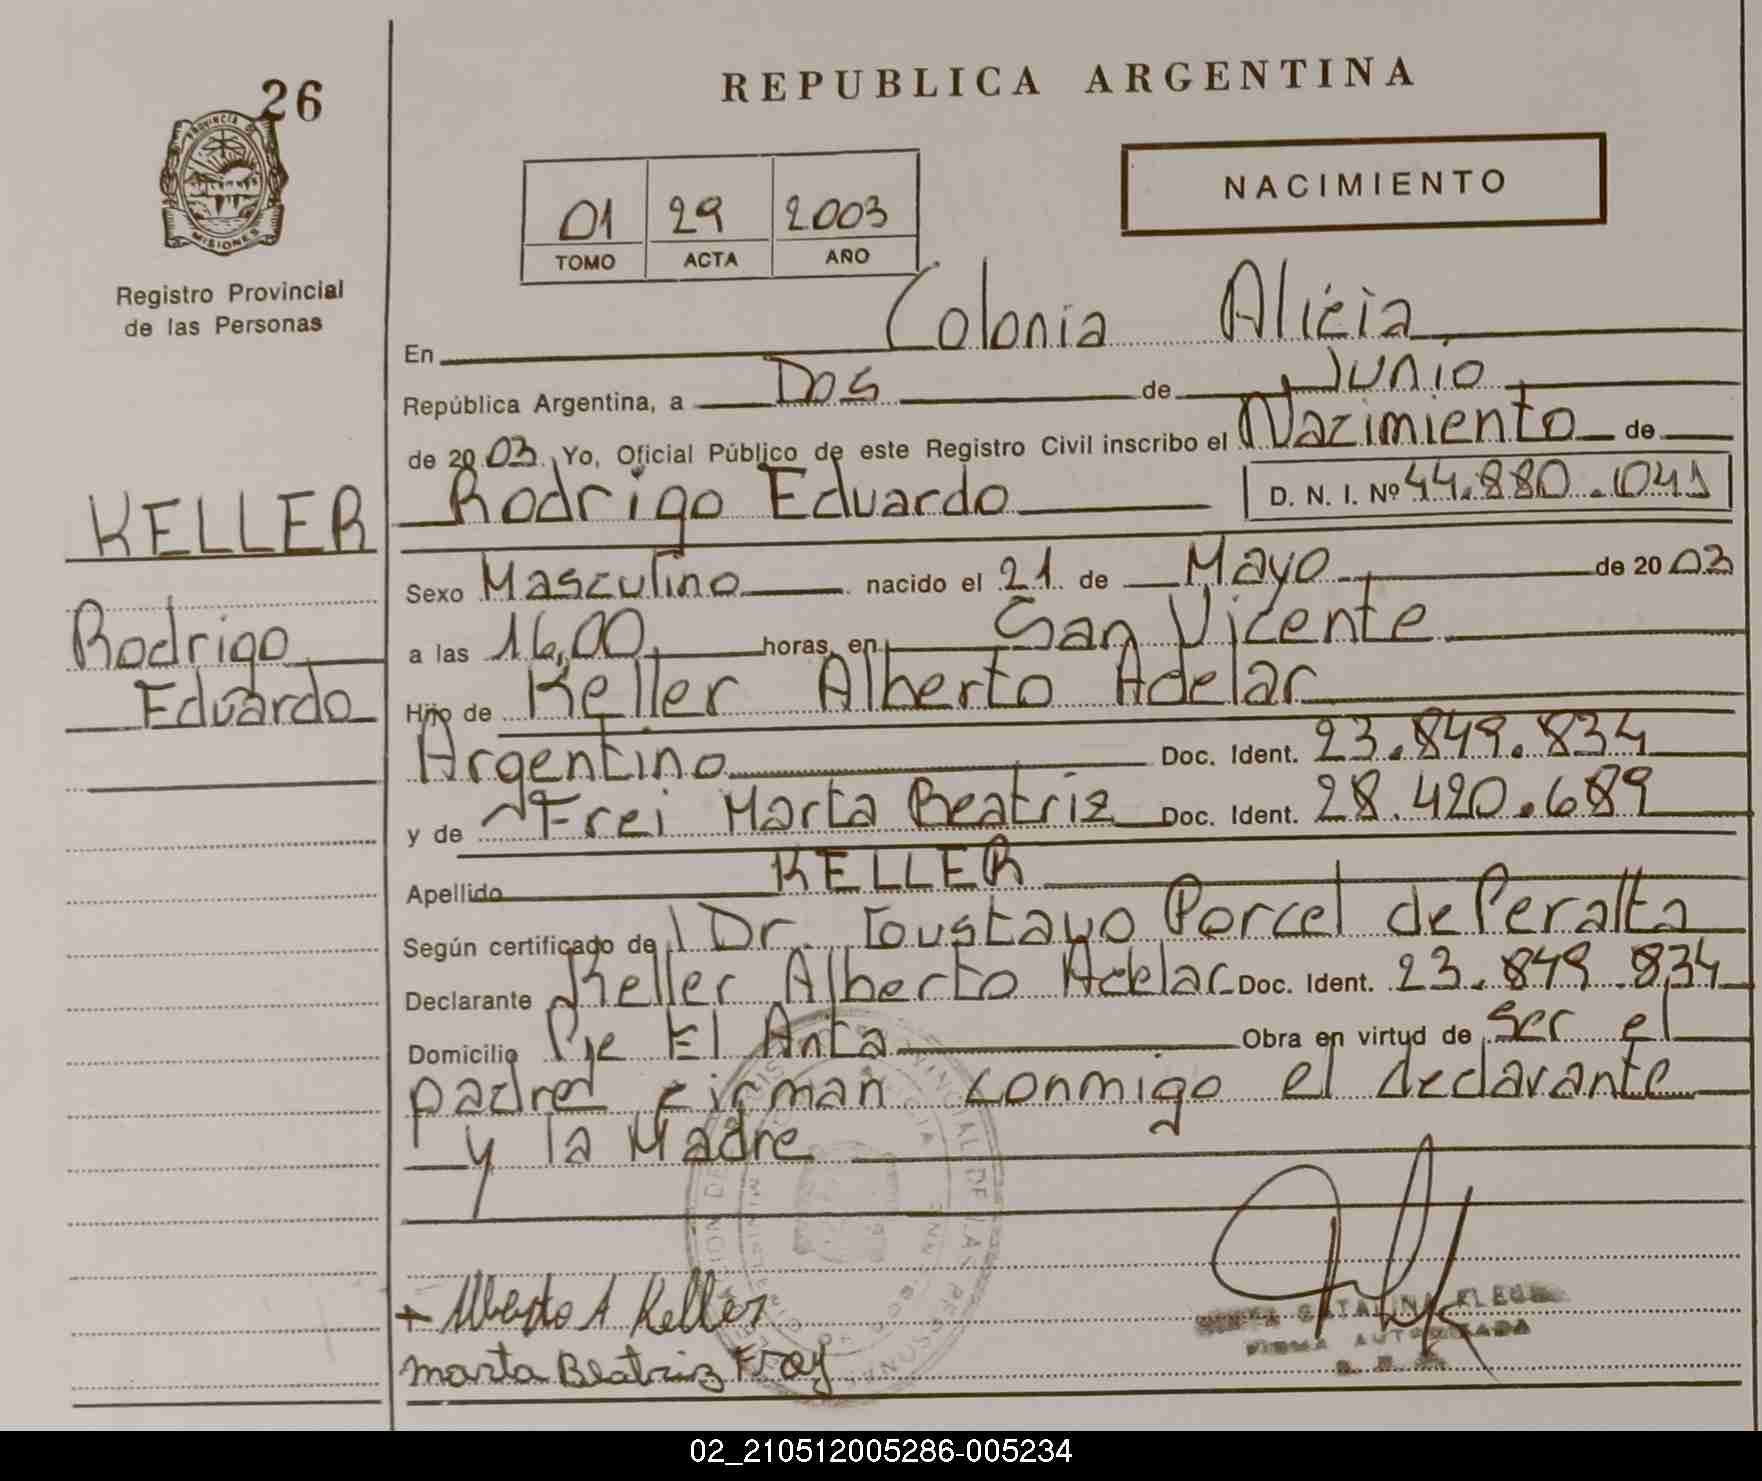 26
PROVINCIA DE
MISIONES
Registro Provincial
de las Personas
REPUBLICA ARGENTINA
NACIMIENTO
01 29 2003
TOMO ACTA AÑO
En Colonia Alicia
República Argentina, a Dos de Junio
de 2003. Yo, Oficial Público de este Registro Civil inscribo el Nazimiento de
Rodrigo Eduardo D. N. I. Nº 44.880.041
KELLER
Rodrigo
Eduardo
Sexo Masculino nacido el 21 de Mayo de 2003
a las 16,00 horas, en San Vicente
Hijo de Keller Alberto Adelar
Argentino Doc. Ident. 23.849.834
y de Frei Marta Beatriz Doc. Ident. 28.420.689
Apellido KELLER
Según certificado de Dr. Gustavo Porcel de Peralta
Declarante Keller Alberto Adelar Doc. Ident. 23.849.834
Domicilio Pje El Anta Obra en virtud de ser el
padre firman conmigo el declarante
y la Madre
Alberto A Keller
Marta Beatriz Frey
CATALINA
FIRMA AUTORIZADA
02_210512005286-005234